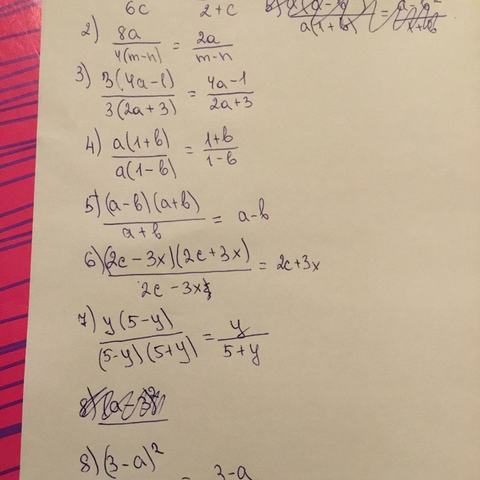 6c 2+c
2) 8a/4(m-n) = 2a/m-n
3) 3(4a-1)/3(2a+3) = 4a-1/2a+3
4) a(1+b)/a(1-b) = 1+b/1-b
5) (a-b)(a+b)/a+b = a-b
6) (2c-3x)(2c+3x)/2c-3x = 2c+3x
7) y(5-y)/(5-y)(5+y) = y/5+y
8) (3-a)² = 3-a